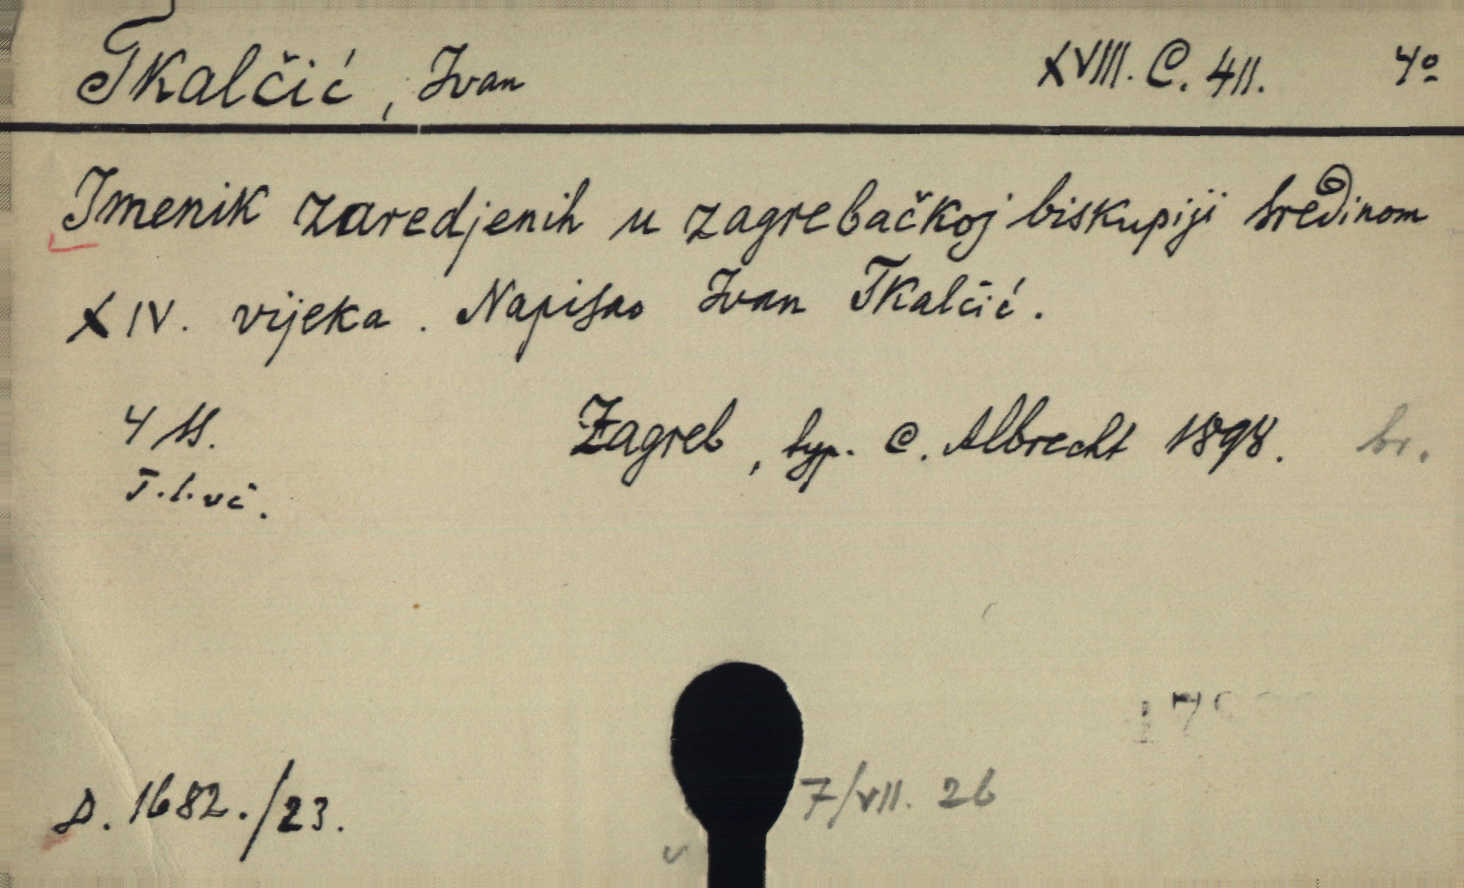 Tkalčić, Ivan XVIII. C. 411. 4º
Imenik zaredjenih u zagrebačkoj biskupiji sredinom
XIV. vijeka. Napisao Ivan Tkalčić.
4 ss. Zagreb, typ. C. Albrecht 1898. br.
D. 1682./23.
7/VII. 26